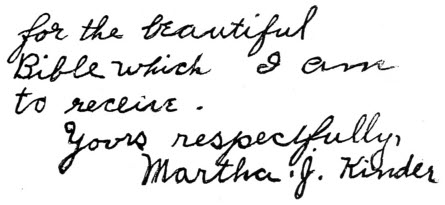 for the beautiful
Bible which I am
to receive.
Yours respectfully,
Martha J. Kinder